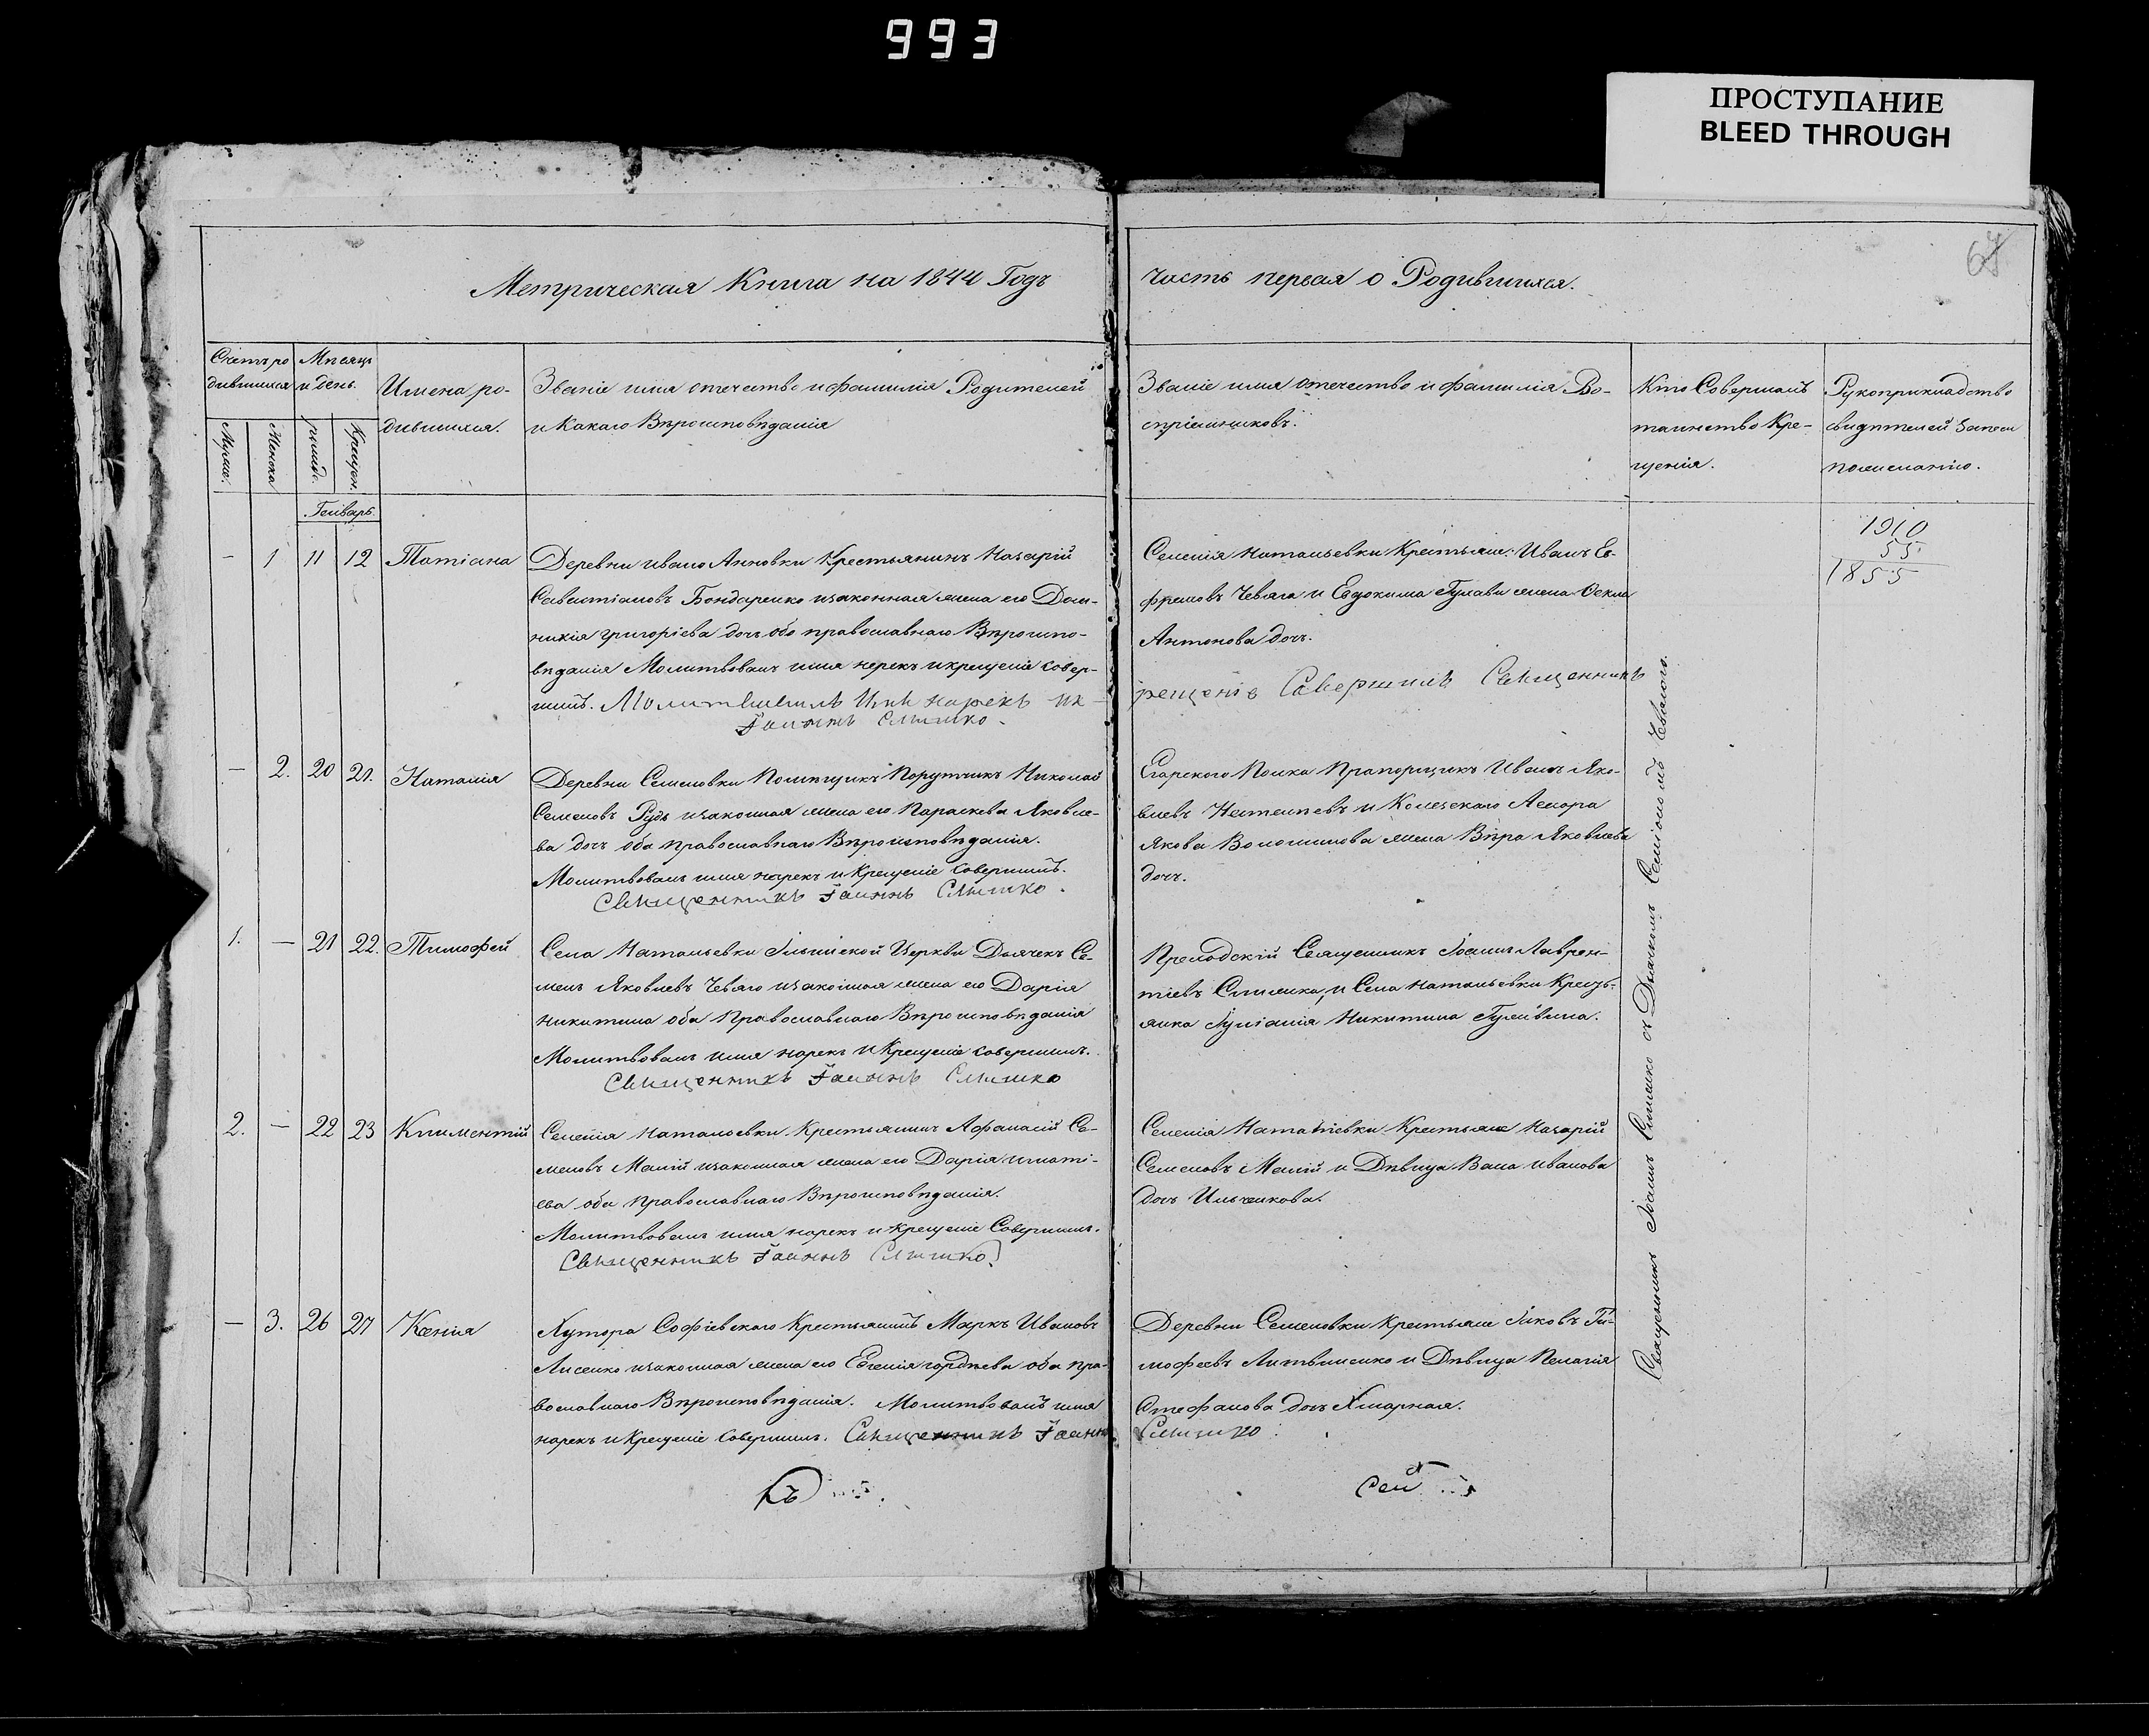 993
ПРОСТУПАНИЕ
BLEED THROUGH
67
Метрическая Книга на 1844 Годъ
часть первая о Родившихся.
Счетъ ро
дившихся
Мужес.
Женска
Мѣсяцъ
и День.
рожд.
Крещен.
Имена ро-
дившихся.
Званіе имя отечество и фамилія Родителей
и Какаго Вѣроисповѣданія
Званіе имя отечество и фамилія Во-
спріемниковъ.
Кто Совершалъ
таинство Кре-
щенія.
Рукоприкладство
свидѣтелей Записи
по желанію.
Генварь.
1910
55
1855
— 1 11 12 Татіана
Деревни Ивано Анновки Крестьянинъ Назарій
Севастіановъ Бондаренко и законная жена его Дом-
никія григоріева дочь обо православнаго Вѣроиспо-
вѣданія Молитвовалъ имя нарекъ и крещеніе совер-
шилъ. Молитвовалъ Имя нарекъ и к-
рещеніе Совершилъ Священникъ
Іоаннъ Слишко.
Селенія Натальевки Крестьяне: Иванъ Ев-
фремовъ Чевяга и Евдокима Гулави жена Фекла
Антонова дочь.
— 2. 20 21. Наталія
Деревни Семеновки Помѣщикъ Порутчикъ Николай
Семеновъ Рудь и законная жена его Параскева Яковле-
ва дочь оба православнаго Вѣроисповѣданія.
Молитвовалъ имя нарекъ и Крещеніе совершилъ.
Священникъ Іоаннъ Слишко.
Егарского Полка Прапорщикъ Иванъ Яко-
влевъ и Колезскаго
Якова Волошинова жена Вѣра Яковлева
дочь.
1. — 21 22. Тимофей
Села Натальевки Церкви Дьячекъ Се-
менъ Яковлевъ Чевяго и законная жена его Дарія
Никитина оба Православнаго Вѣроисповѣданія
Молитвовалъ имя нарекъ и Крещеніе совершилъ.
Священникъ Іоаннъ Слишко
Священникъ Іоаннъ Лаврен-
тіевъ и Села Натальевки Кресть-
янка Іуліанія Никитина
2. — 22 23 Климентій
Селенія Натальевки Крестьянинъ Афанасій Се-
меновъ Малій и законная жена его Дарія игнаті-
ева оба православнаго Вѣроисповѣданія.
Молитвовалъ имя нарекъ и крещеніе Совершилъ.
Священникъ Іоаннъ Слишко.
Селенія Натальевки Крестьяне Назарій
Семеновъ Малій и Дѣвица Васа иванова
дочь Ильченкова.
— 3. 26 27 Ксенія
Хутора Софіевскаго Крестьянинъ Маркъ Ивановъ
Лисенко и законная жена его Евгенія гордѣева оба пра-
вославнаго Вѣроисповѣданія. Молитвовалъ имя
нарекъ и Крещеніе Совершилъ. Священникъ Іоаннъ
Слишко.
Деревни Семеновки крестьяне Яковъ Ти-
мофеевъ Литвиненко и Дѣвица Пелагія
Стефанова дочь Хмарная.
Священникъ Іоаннъ Слишко съ Дьячкомъ Семіономъ Чевягою.
Къ
сей